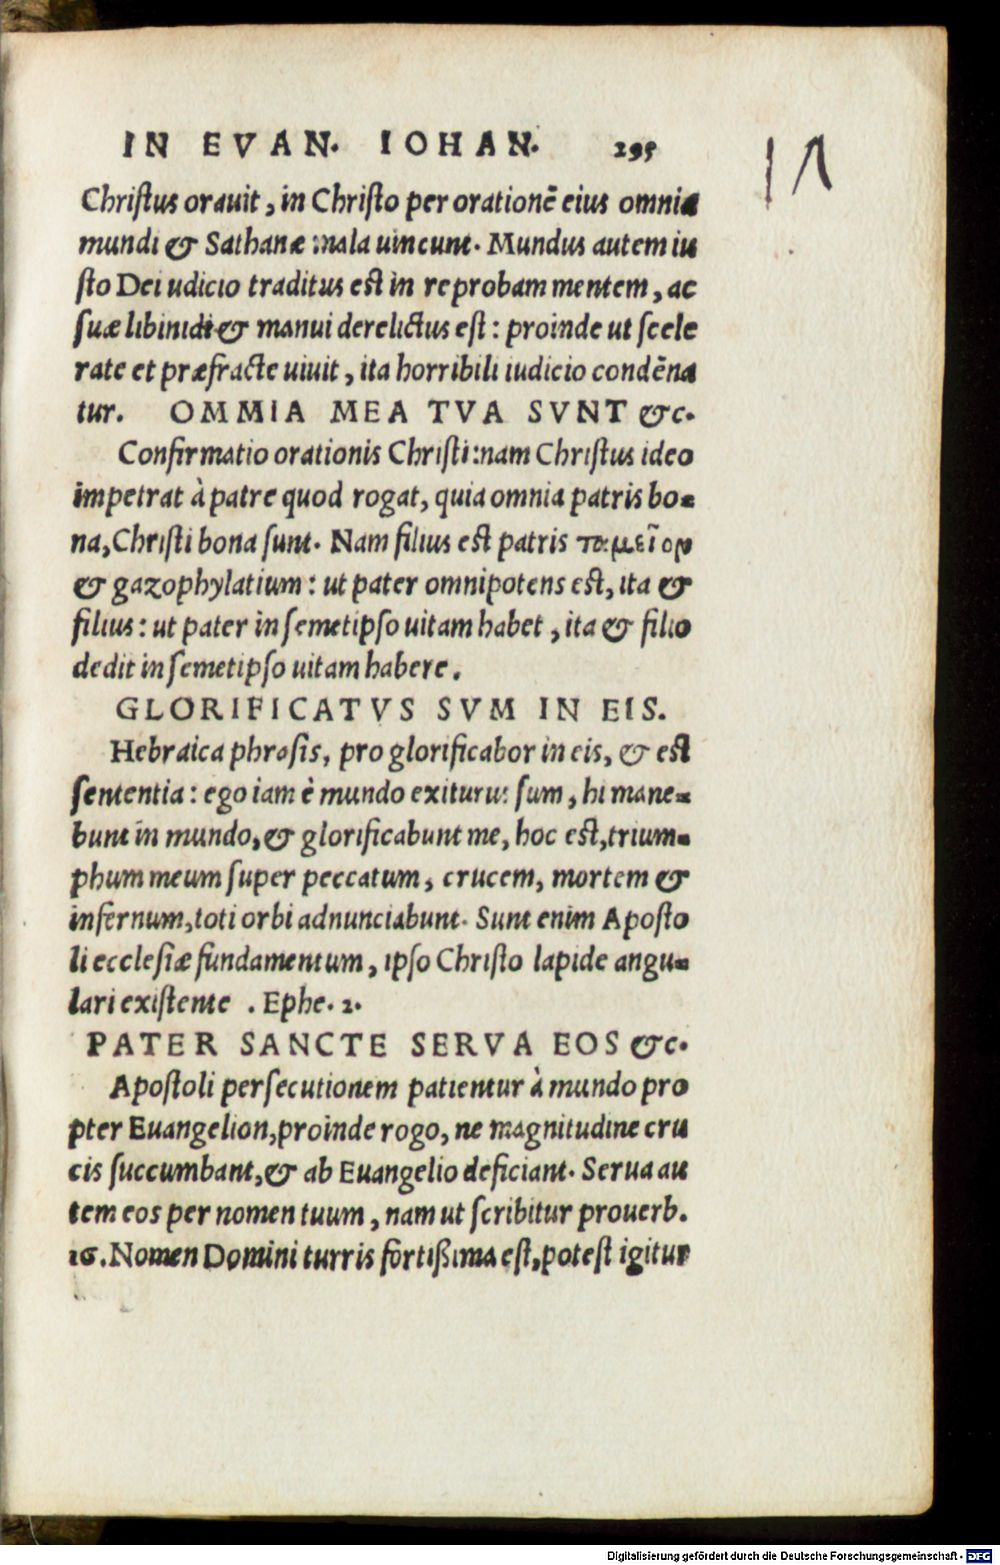 IN EVAN. IOHAN. 295
Christus orauit, in Christo per orationē eius omnia
mundi & Sathanæ mala uincunt. Mundus autem iu
sto Dei iudicio traditus est in reprobam mentem, ac
suæ libinidi & manui derelictus est: proinde ut scele
rate et præfracte uiuit, ita horribili iudicio condēna
tur. OMMIA MEA TVA SVNT &c.
Confirmatio orationis Christi: nam Christus ideo
impetrat à patre quod rogat, quia omnia patris bo-
na, Christi bona sunt. Nam filius est patris ταμεῖον
& gazophylatium: ut pater omnipotens est, ita &
filius: ut pater in semetipso uitam habet, ita & filio
dedit in semetipso uitam habere.
GLORIFICATVS SVM IN EIS.
Hebraica phrasis, pro glorificabor in eis, & est
sententia: ego iam è mundo exiturus sum, hi mane-
bunt in mundo, & glorificabunt me, hoc est, trium-
phum meum super peccatum, crucem, mortem &
infernum, toti orbi adnunciabunt. Sunt enim Aposto
li ecclesiæ fundamentum, ipso Christo lapide angu-
lari existente . Ephe. 2.
PATER SANCTE SERVA EOS &c.
Apostoli persecutionem patientur à mundo pro
pter Euangelion, proinde rogo, ne magnitudine cru
cis succumbant, & ab Euangelio deficiant. Serua au
tem eos per nomen tuum, nam ut scribitur prouerb.
16. Nomen Domini turris fortißima est, potest igitur
Digitalisierung gefördert durch die Deutsche Forschungsgemeinschaft - DFG